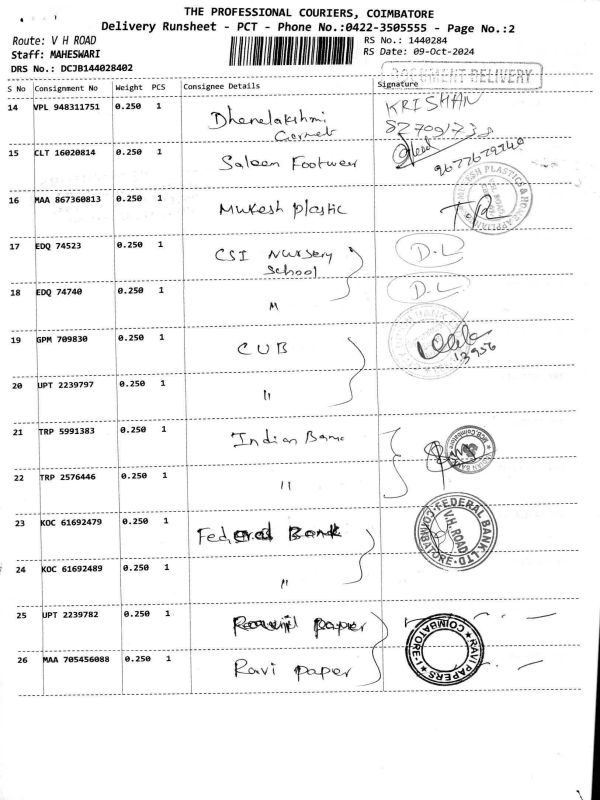 THE PROFESSIONAL COURIERS, COIMBATORE
Delivery Runsheet - PCT - Phone No.:0422-3505555 - Page No.:2
Route: V H ROAD
RS No.: 1440284
Staff: MAHESWARI
RS Date: 09-Oct-2024
DRS No.: DCJB144028402
DOCUMENT DELIVERY
S No Consignment No Weight PCS Consignee Details Signature
14 VPL 948311751 0.250 1 KRISHAN
15 CLT 16020814 0.250 1 Saleem Footwear 9677679240
16 MAA 867360813 0.250 1 Mukesh plastic
17 EDQ 74523 0.250 1 CSI Nursery School D.L
18 EDQ 74740 0.250 1 " D.L
19 GPM 709830 0.250 1 CUB 13956
20 UPT 2239797 0.250 1 "
21 TRP 5991383 0.250 1 Indian Bank
22 TRP 2576446 0.250 1 "
23 KOC 61692479 0.250 1 Federal Bank
FEDERAL BANK LTD
V.H. ROAD
COIMBATORE
24 KOC 61692489 0.250 1 "
25 UPT 2239782 0.250 1 paper
26 MAA 705456088 0.250 1 Ravi paper
RAVI PAPERS
COIMBATORE-1